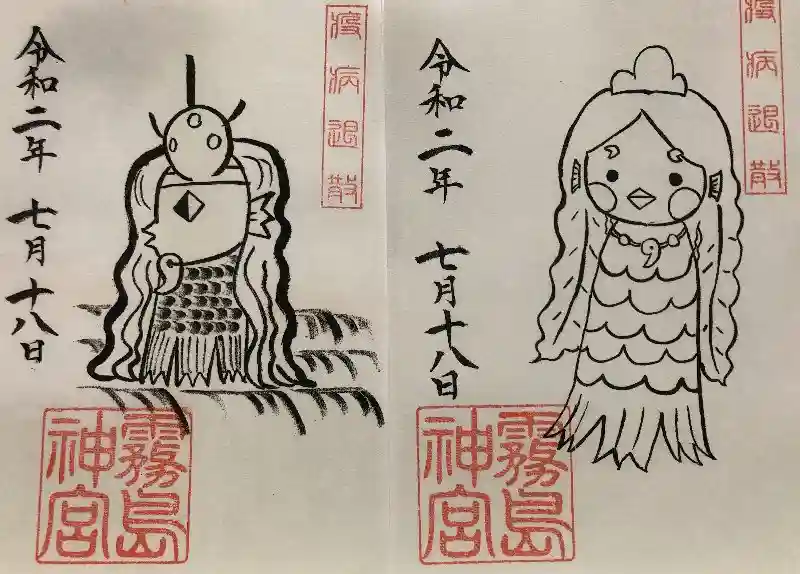 疫病退散
令和二年 七月十八日
霧島
神宮
疫病退散
令和二年 七月十八日
霧島
神宮